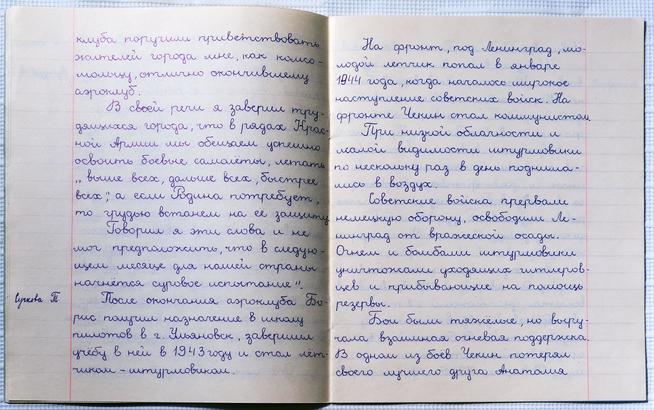 клуба поручили приветствовать
жителей города мне, как комсо-
мольцу, отлично окончившему
аэроклуб.
В своей речи я заверил тру-
дящихся города, что в рядах Крас-
ной Армии мы обещаем успешно
освоить боевые самолёты, летать
„выше всех, дальше всех, быстрее
всех", а если Родина потребует,
то грудью встанем на её защиту.
Говорил я эти слова и не
мог предположить, что в следую-
щем месяце для нашей страны
начнётся суровое испытание".
Сучкова Т.
После окончания аэроклуба Бо-
рис получил назначение в школу
пилотов в г. Ульяновск, завершил
учёбу в ней в 1943 году и стал лёт-
чиком-штурмовиком.
На фронт, под Ленинград, мо-
лодой летчик попал в январе
1944 года, когда началось широкое
наступление советских войск. На
фронте Чекин стал коммунистом.
При низкой облачности и
малой видимости штурмовики
по нескольку раз в день поднима-
лись в воздух.
Советские войска прервали
немецкую оборону, освободили Ле-
нинград от вражеской осады.
Огнем и бомбами штурмовики
уничтожали уходящих гитлеров-
цев и прибывающие на помощь
резервы.
Бои были тяжёлые, но выру-
чала взаимная огневая поддержка.
В одном из боёв Чекин потерял
своего лучшего друга Анатолия